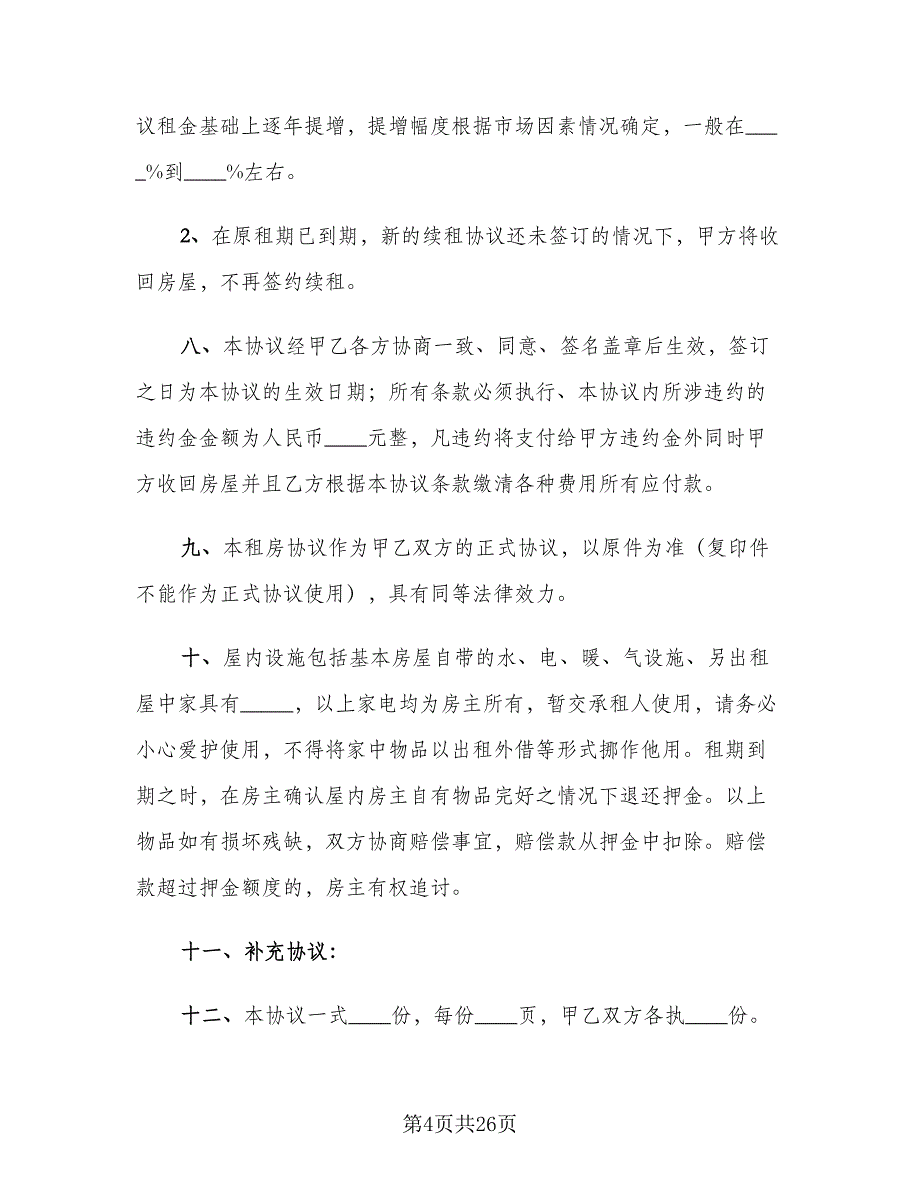 议租金基础上逐年提增，提增幅度根据市场因素情况确定，一般在___
_%到____%左右。
2、在原租期已到期，新的续租协议还未签订的情况下，甲方将收
回房屋，不再签约续租。
八、本协议经甲乙各方协商一致、同意、签名盖章后生效，签订
之日为本协议的生效日期；所有条款必须执行、本协议内所涉违约的
违约金金额为人民币____元整，凡违约将支付给甲方违约金外同时甲
方收回房屋并且乙方根据本协议条款缴清各种费用所有应付款。
九、本租房协议作为甲乙双方的正式协议，以原件为准（复印件
不能作为正式协议使用），具有同等法律效力。
十、屋内设施包括基本房屋自带的水、电、暖、气设施、另出租
屋中家具有_____，以上家电均为房主所有，暂交承租人使用，请务必
小心爱护使用，不得将家中物品以出租外借等形式挪作他用。租期到
期之时，在房主确认屋内房主自有物品完好之情况下退还押金。以上
物品如有损坏残缺，双方协商赔偿事宜，赔偿款从押金中扣除。赔偿
款超过押金额度的，房主有权追讨。
十一、补充协议：
十二、本协议一式____份，每份____页，甲乙双方各执____份。
第4页共26页